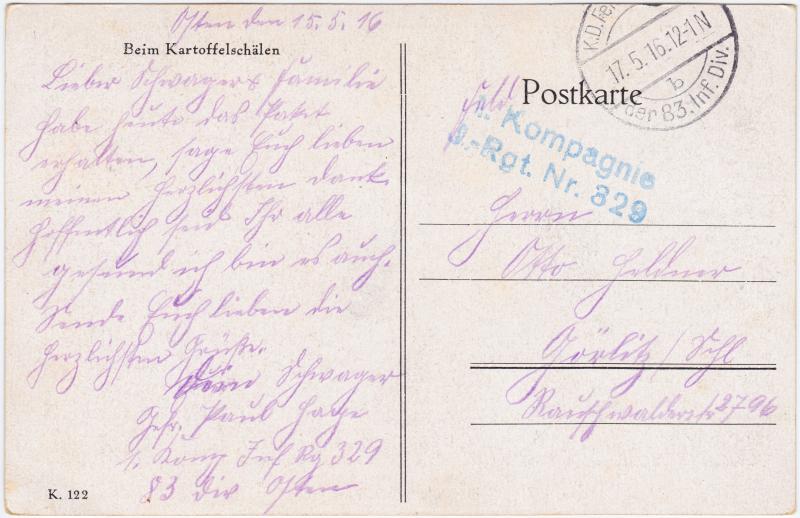 Osten den 15.5.16
Beim Kartoffelschälen
Lieber Schwager & Familie
habe heute das Paket
erhalten, sage Euch lieben
meinen herzlichsten Dank.
Hoffentlich seid Ihr alle
gesund ich bin es auch.
Sende Euch lieben die
herzlichsten Grüße.
Euer Schwager
Gefr. Paul
1. Komp Inf Rg 329
83 Div Osten
K. 122
Feld Postkarte
K.D. Fel
17.5.16.12-1N
b
der 83.Inf.Div.
1. Kompagnie
J.-Rgt. Nr. 329
Herrn
Otto Heldner
Görlitz / Schl
Rauschwalderstr